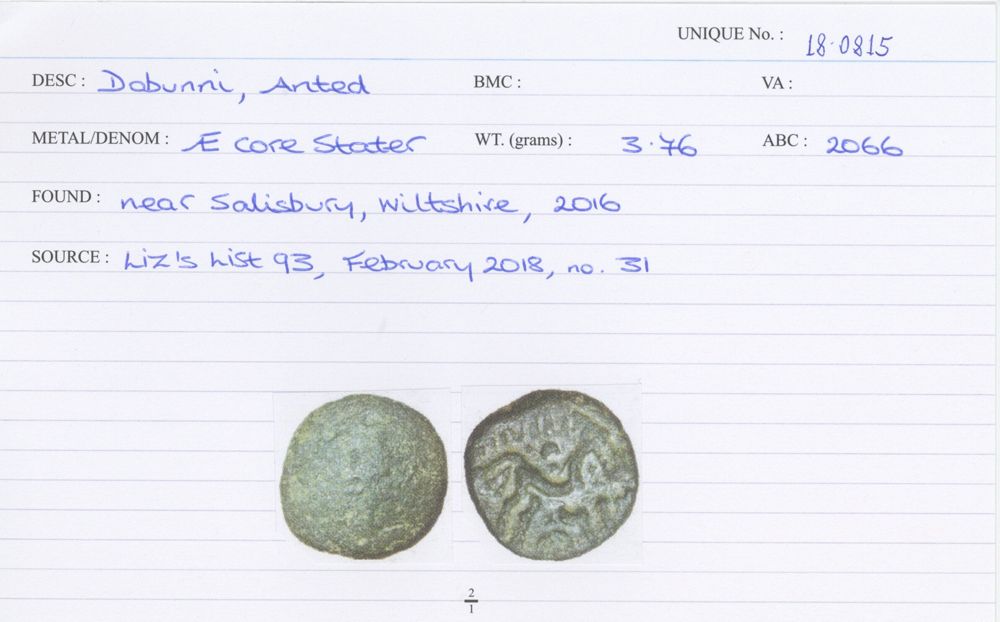 UNIQUE No. : 18·0815
DESC : Dobunni, Anted BMC : VA :
METAL/DENOM : Æ core Stater WT. (grams) : 3·76 ABC : 2066
FOUND : near Salisbury, Wiltshire, 2016
SOURCE : Liz's List 93, February 2018, no. 31
2
1